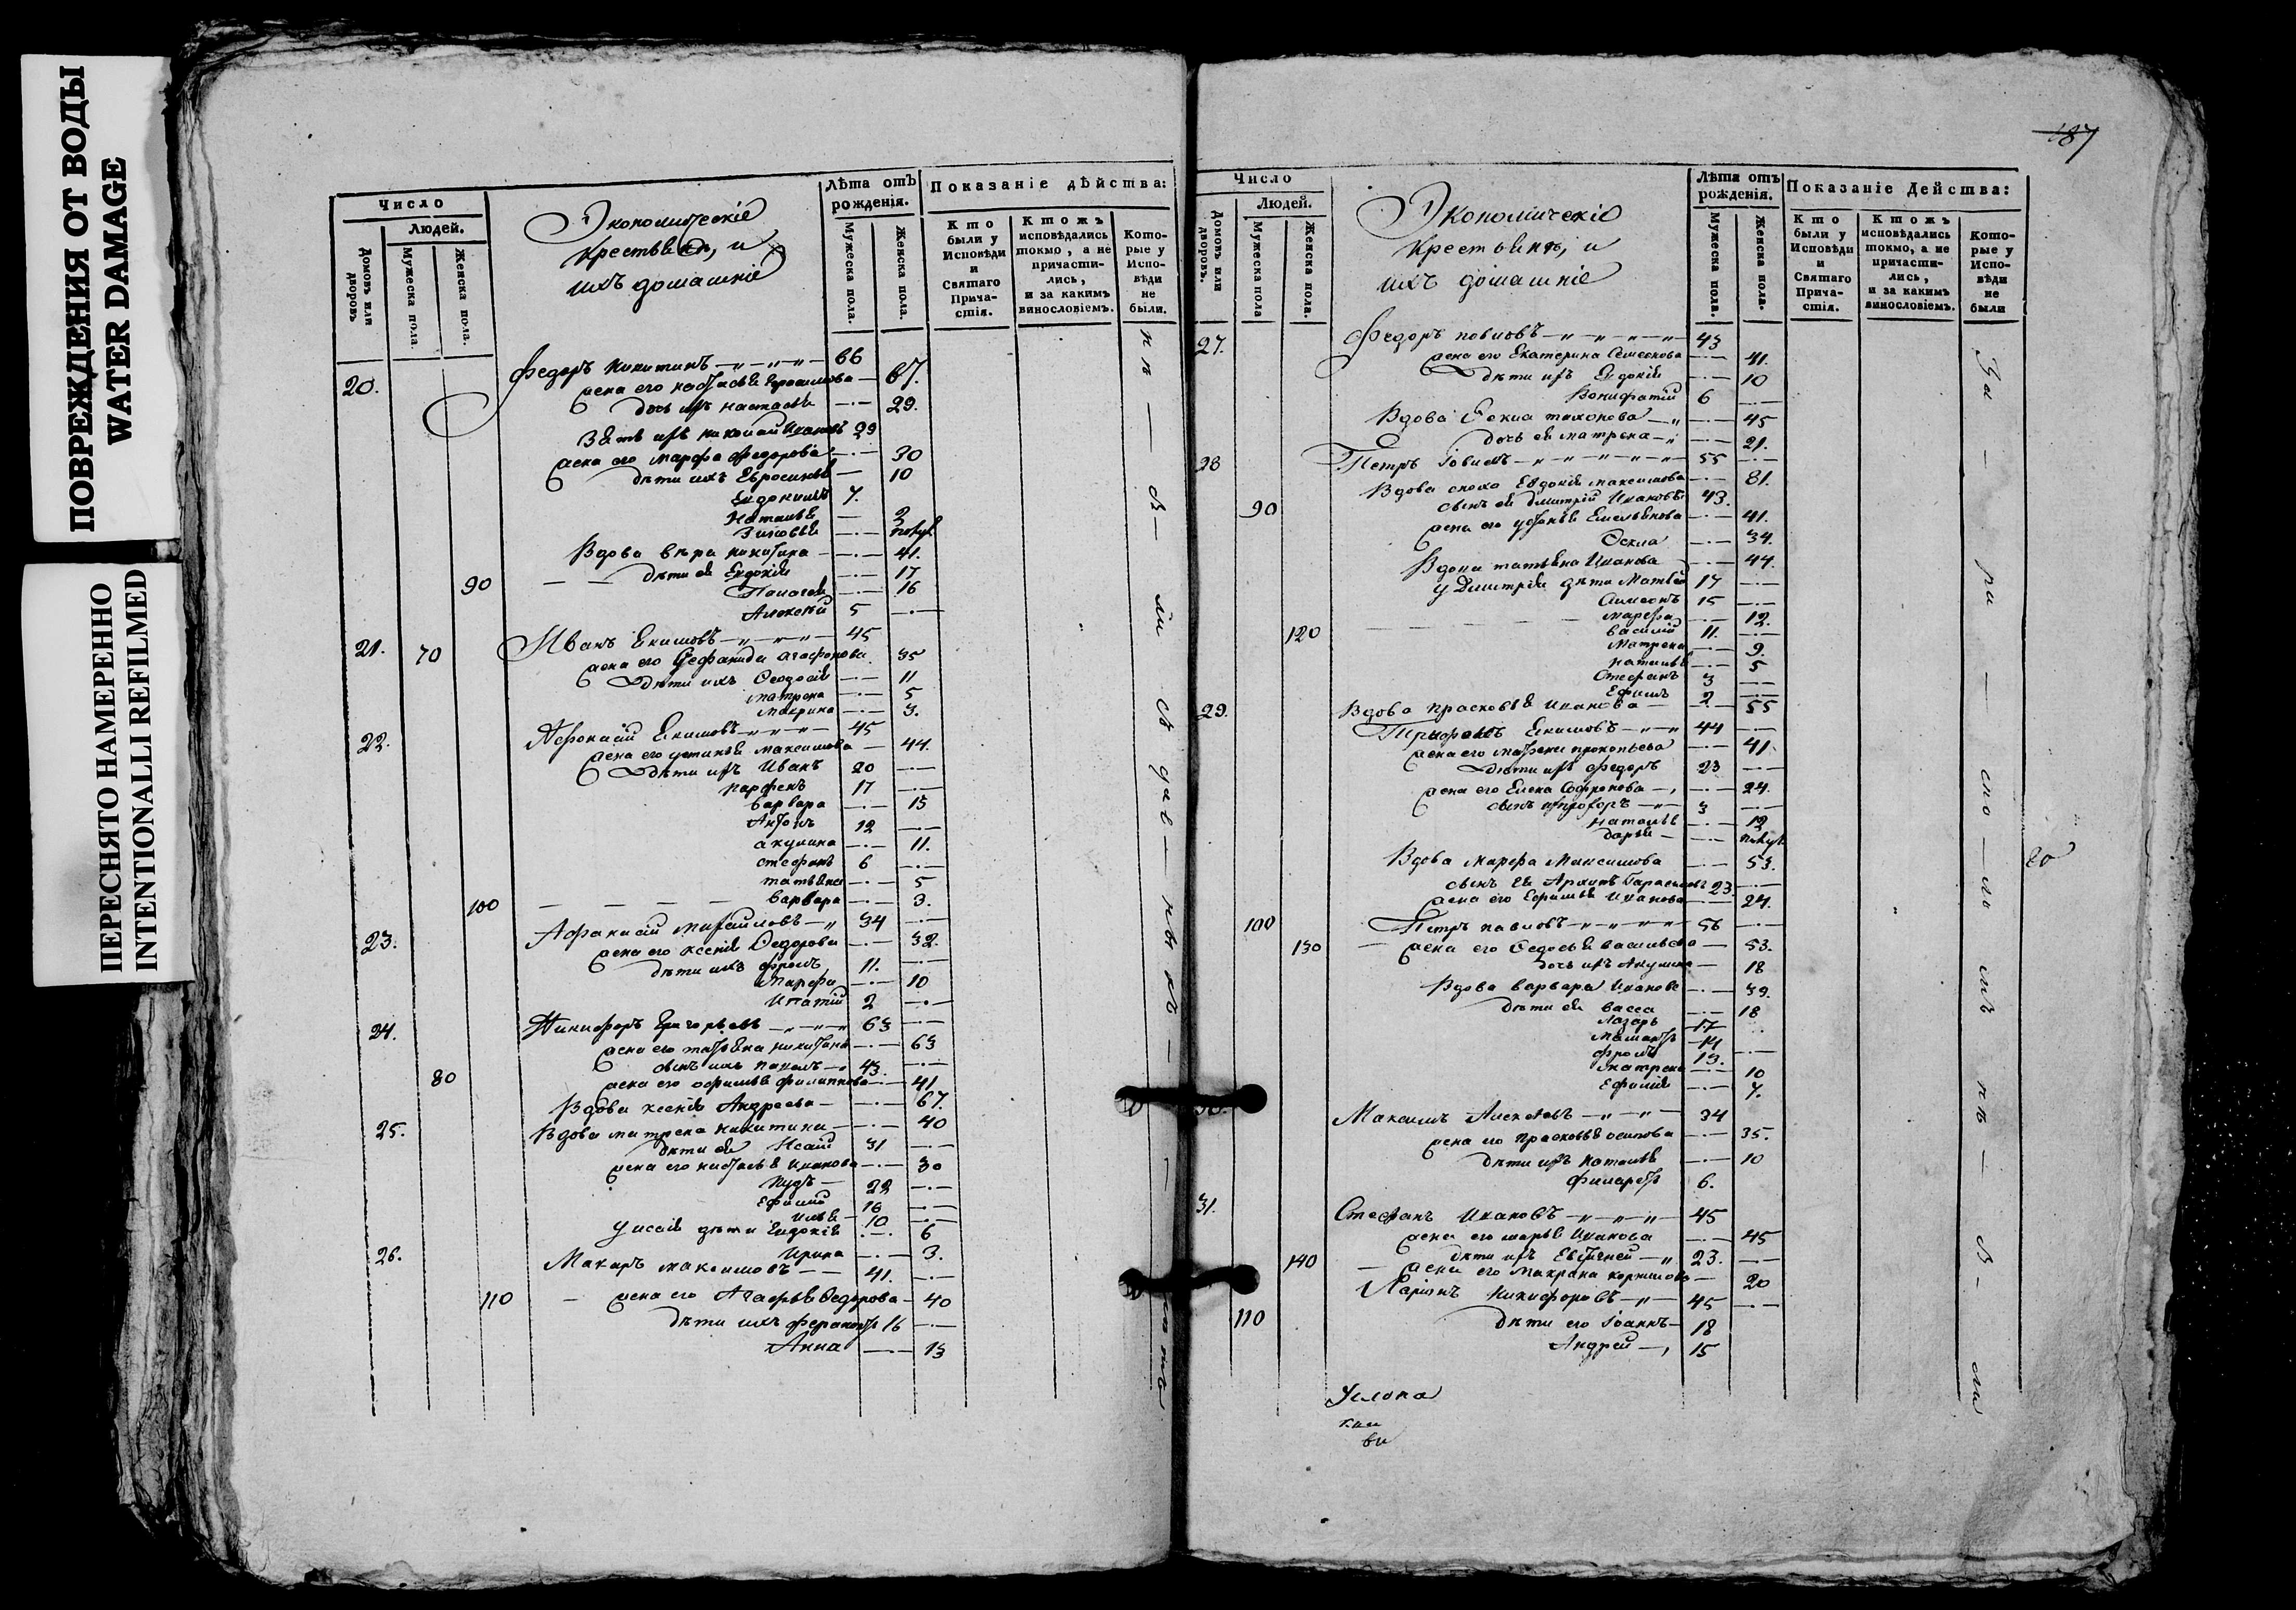 ПОВРЕЖДЕНИЯ ОТ ВОДЫ
WATER DAMAGE
ПЕРЕСНЯТО НАМЕРЕННО
INTENTIONALLI REFILMED
Число
Людей.
Домовъ или дворовъ
Мужеска пола.
Женска пола.
Экономическіе
крестьяне, и
ихъ домашніе
Лѣта отъ рожденія.
Мужеска пола.
Женска пола.
Показаніе дѣйства:
Кто были у Исповѣди и Святаго Причастія.
Ктожъ исповѣдались токмо, а не причастились, и за какимъ винословіемъ.
Которые у Исповѣди не были.
20. Федоръ Никитинъ 66
жена его Настасья Герасимова 67.
дочь ихъ Настасья 29.
Зять ихъ Николай Ивановъ 29
жена его Марфа Федорова 30
дѣти ихъ Евросинья 10
Евдокимъ 7.
Наталья 2
Зиновья
Вдова Вѣра Никитина 41.
90 дѣти ея Евдокія 17
Пелагея 16
Алексѣй 5
21. 70 Иванъ Екимовъ 45
жена его Стефанида Агафонова 35
дѣти ихъ Феодосія 11
Матрона 5
Макрина 3.
22. Афонасій Екимовъ 45
жена его Устинья Максимова 44.
дѣти ихъ Иванъ 20
Парфенъ 17
Варвара 15
Антонъ 12
Акулина 11.
Стефанъ 6
Татьяна 5
100 Варвара 3.
23. Афанасій Михайловъ 34
жена его Ксенія Федорова 32.
дѣти ихъ Фролъ 11.
Марфа 10
Ипатій 2
24. Никифоръ Григорьевъ 63
жена его Татьяна Никитина 63
сынъ ихъ Павелъ 43.
80 жена его Офимья Филиппова 41
Вдова Ксенія Андреева 67.
25. Вдова Матрена Никитина 40
дѣти ея Исай 31
жена его Настасья Иванова 30
22
Ефимій 16
Илья 10
у Исаія дѣти Евдокія 6
Ирина 3.
26. Макаръ Максимовъ 41.
110 жена его Агафья Федорова 40
дѣти ихъ Ферапонтъ 16
Анна 13
187
Число
Людей.
Домовъ или дворовъ.
Мужеска пола
Женска пола.
Экономическіе
крестьяне, и
ихъ домашніе
Лѣта отъ рожденія.
Мужеска пола.
Женска пола.
Показаніе Действа:
Кто были у Исповѣди и Святаго Причастія.
Ктожъ исповѣдались токмо, а не причастились, и за какимъ винословіемъ.
Которые у Исповѣди не были
27. Федоръ Павловъ 43
жена его Екатерина Семенова 41.
дѣти ихъ Евдокія 10
Вонифатій 6
Вдова Фекла Тихонова 45
дочь ея Матрена 21.
28 Петръ 55
Вдова Евдокія Максимова 81.
90 сынъ ея Димитрій Ивановъ 43.
жена его Устинья Емельянова 41.
Фекла 34.
Вдова Татьяна Иванова 44.
у Димитрія дѣти Матвѣй 17
Симеонъ 15
Марфа 12.
120 Василій 11.
Матрена 9.
Наталья 5
Стефанъ 3
Ефимъ 2
29. Вдова Прасковья Иванова 55
Трифонъ Екимовъ 44
жена его Матрена Прокопьева 41.
дѣти ихъ Федоръ 23
жена его Елена Софронова 24.
сынъ ихъ Прохоръ 3
Наталья 12
Дарья
Вдова Марфа Максимова 53.
сынъ ея Архипъ Гарасимовъ 23.
жена его Ефимья Иванова 24.
100 Петръ Павловъ 56
130 жена его Федосья Васильева 53.
дочь ихъ Акулина 18
Вдова Варвара Иванова 39.
дѣти ея Васса 18
Лазарь 17
14
Фролъ 13.
Матрена 10
Ефимія 7.
Максимъ Алексѣевъ 34
жена его Прасковья Осипова 35.
дѣти ихъ Наталья 10
Филаретъ 6.
31. Стефанъ Ивановъ 45
жена его Марья Иванова 45
дѣти ихъ Евстигней 23.
140 жена его Макрина 20
Ларіонъ Никифоровъ 45
110 дѣти его Іоаннъ 18
Андрей 15